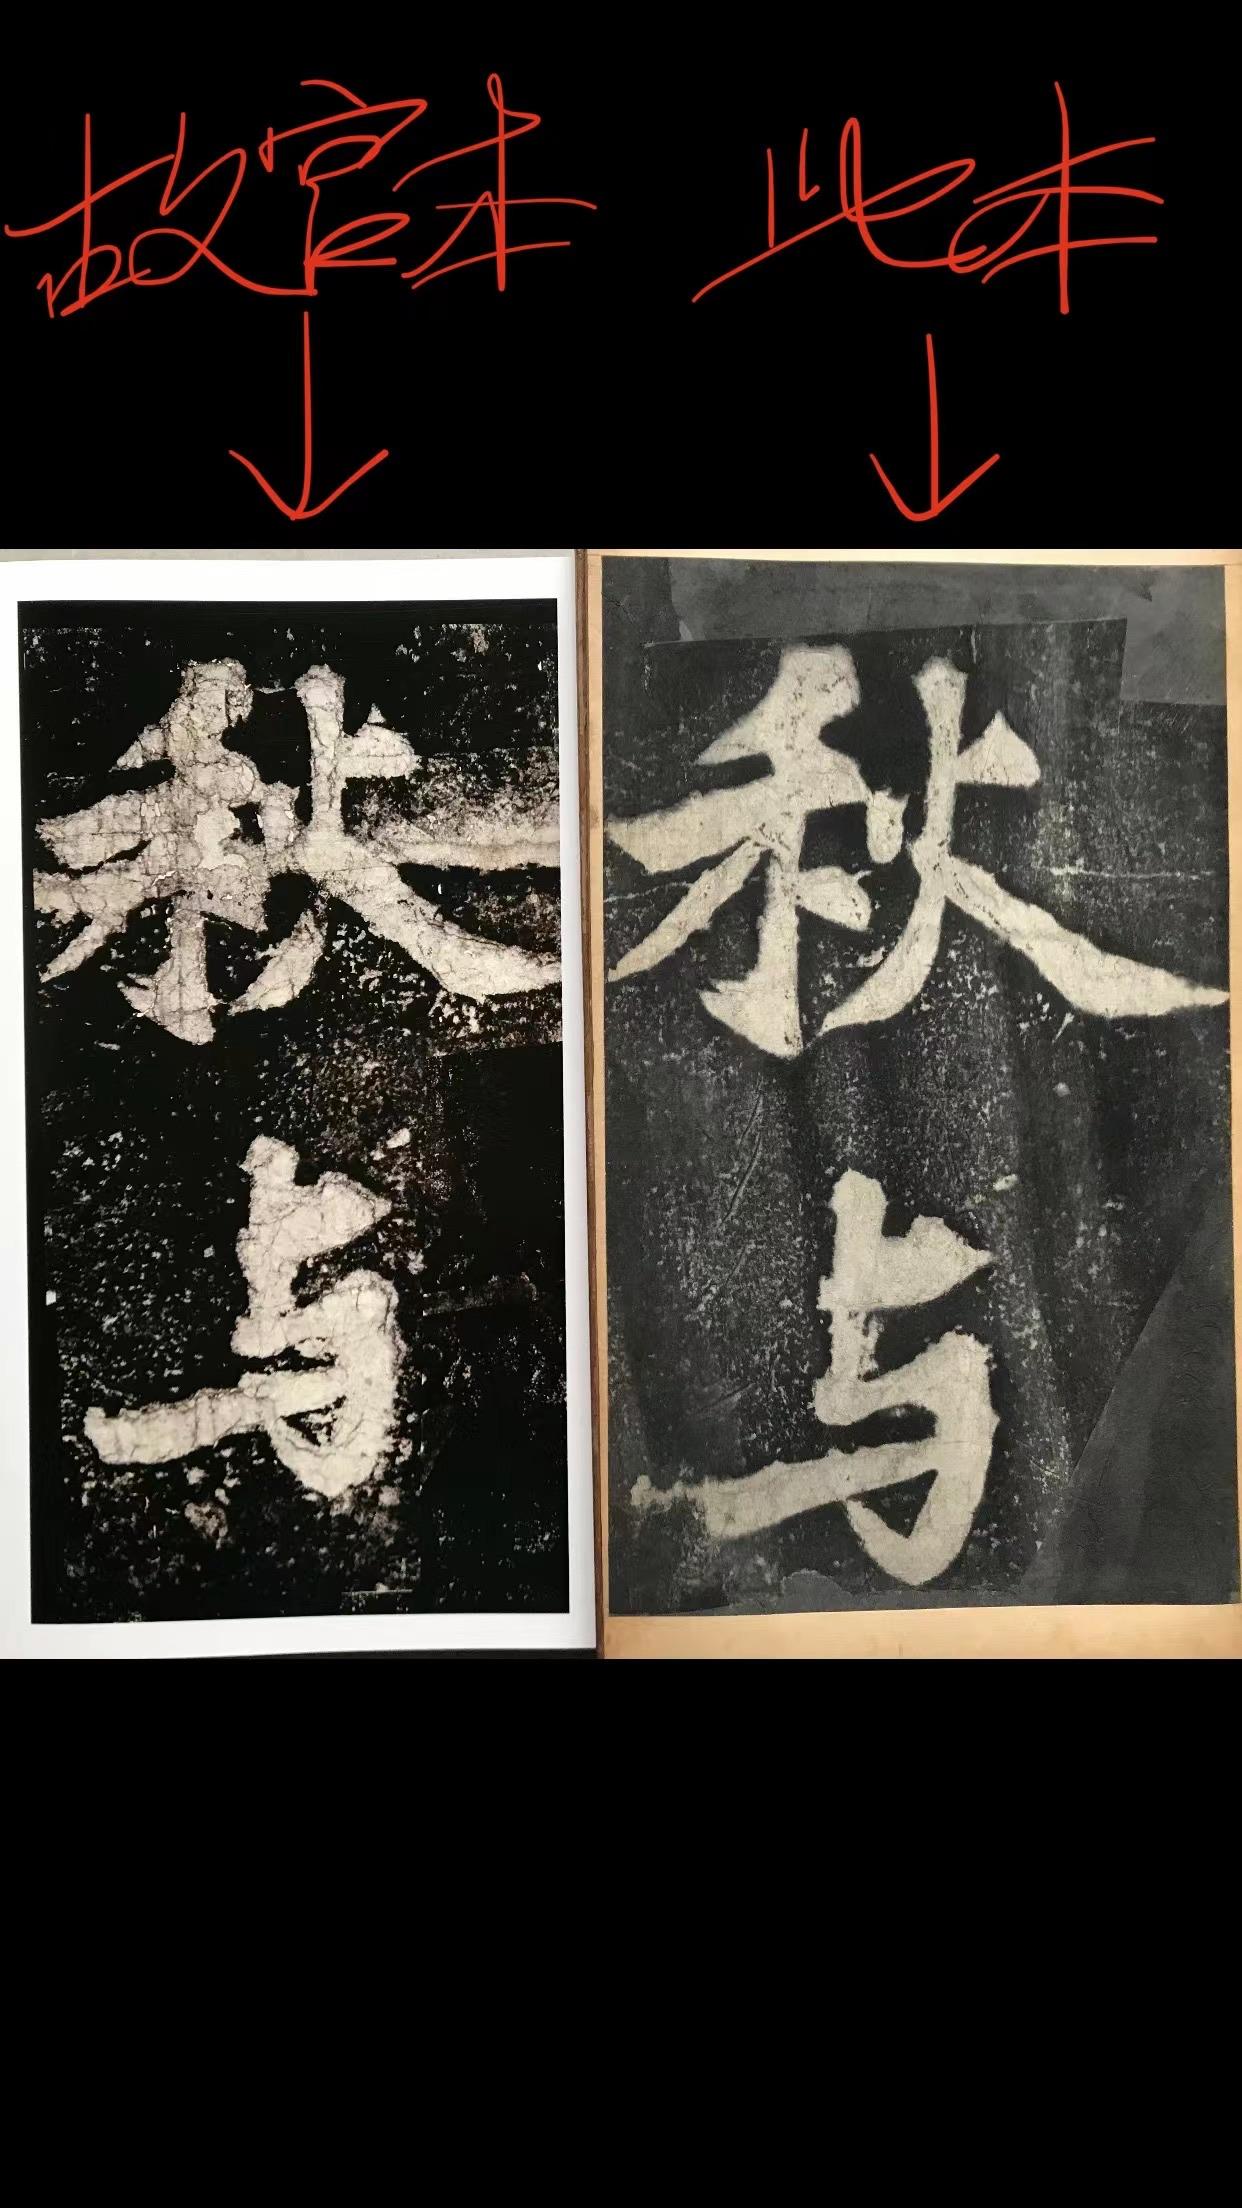 故宫本
此本
秋
与
秋
与